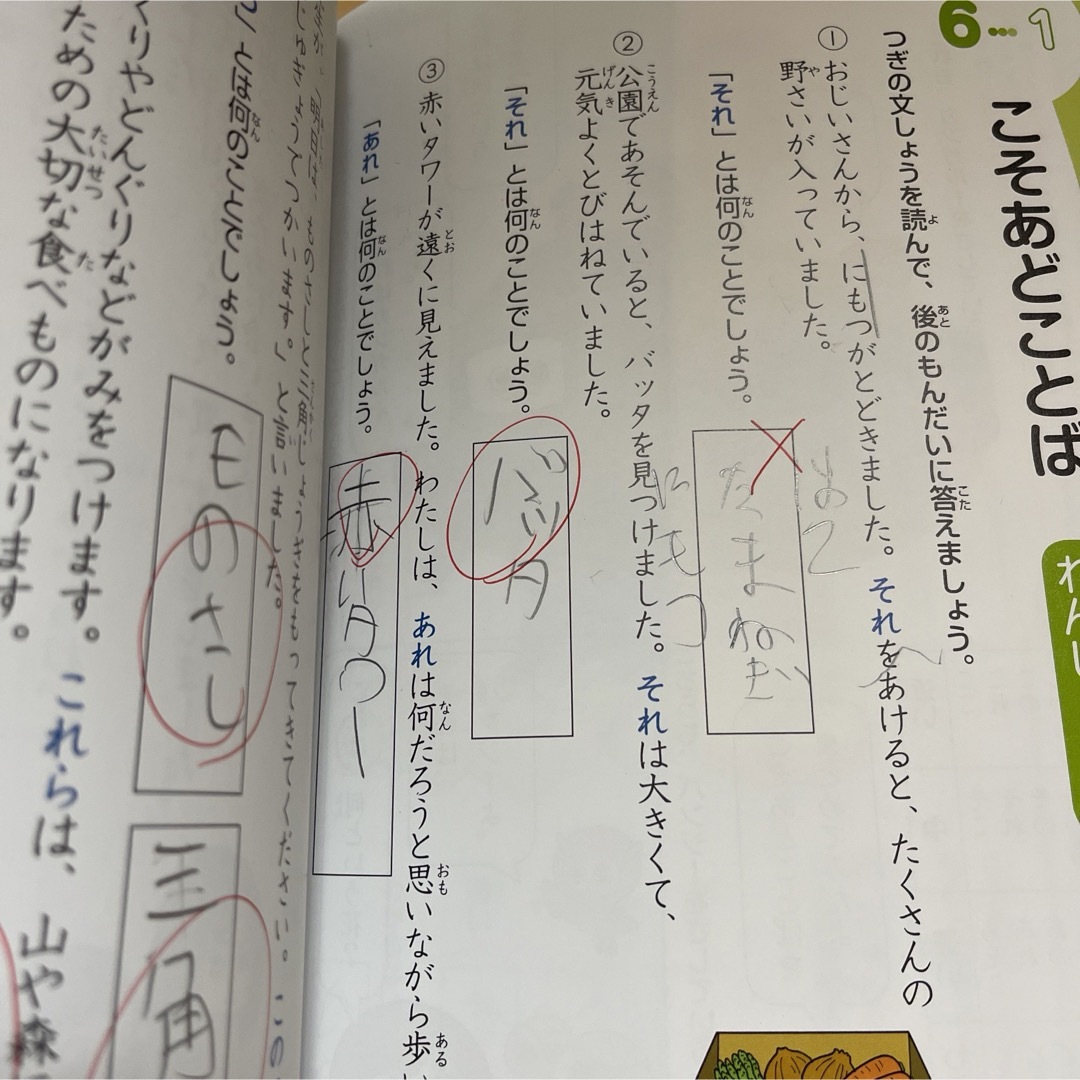 6…1
こそあどことば
つぎの文しょうを読んで、後のもんだいに答えましょう。
① おじいさんから、にもつがとどきました。それをあけると、たくさんの
野さいが入っていました。
「それ」とは何のことでしょう。
はこ
たまねぎ
にもつ
② 公園であそんでいると、バッタを見つけました。それは大きくて、
元気よくとびはねていました。
「それ」とは何のことでしょう。
バッタ
③ 赤いタワーが遠くに見えました。わたしは、あれは何だろうと思いながら歩い
「あれ」とは何のことでしょう。
赤いタワー
明日は、ものさしと三角じょうぎをもってきてください。この
じゅぎょうでつかいます。」と言いました。
とは何のことでしょう。
ものさし
三角
くりやどんぐりなどがみをつけます。これらは、山や森
ための大切な食べものになります。